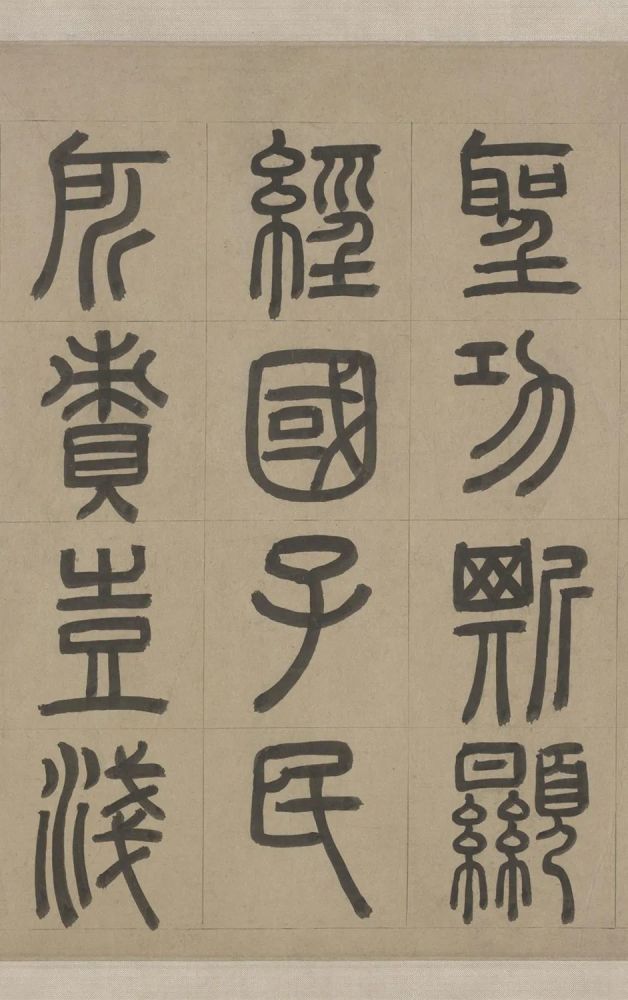 聖功斯顯
經國子民
所賚豈淺